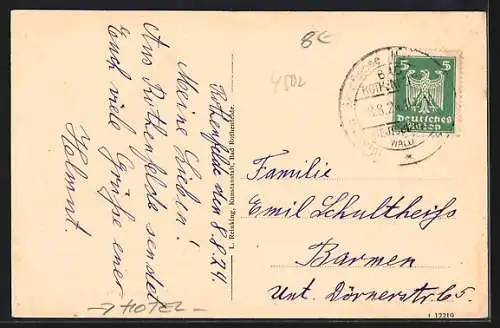 Rothenfelde den 8.8.24.
Meine Lieben!
Aus Rothenfelde sendet
Euch viele Grüße euer
Helmut.
→ HOTEL –
L. Reinking, Kunstanstalt, Bad Rothenfelde.
8€
4502
BAD
ROTHEN
8.8.24
WALD
5 5
Deutsches
Reich
Familie
Emil Schultheiss
Barmen
Unt. Dörnerstr. 65.
L 12219